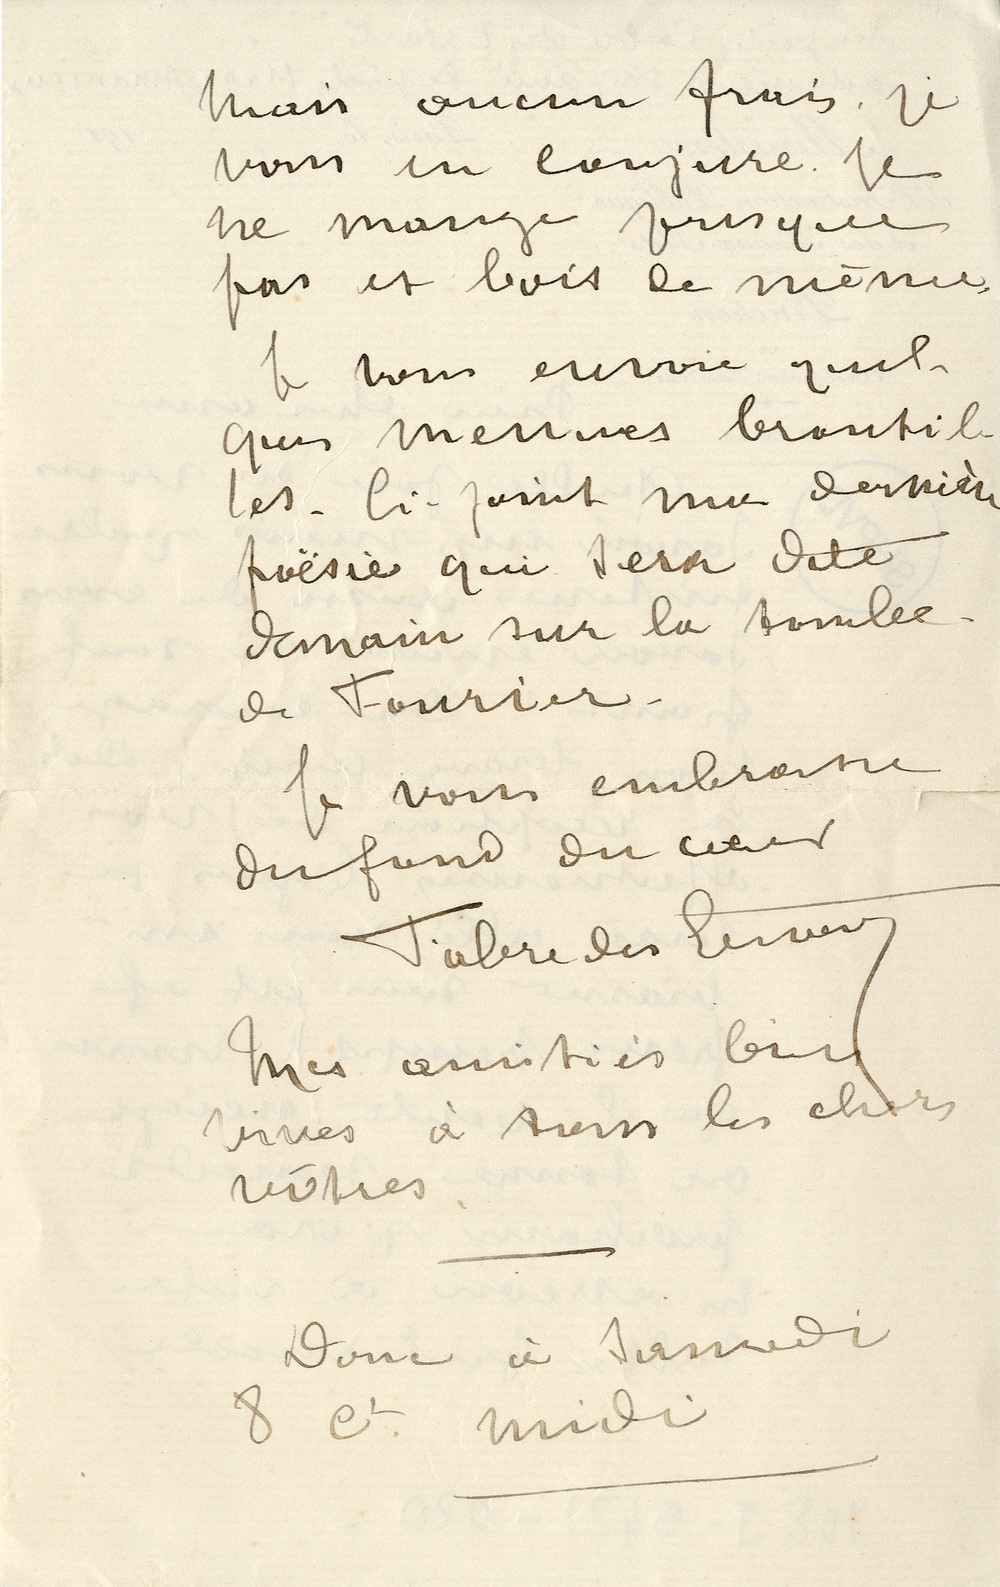 Mais aucun frais. je
vous en conjure. Je
ne mange presque
pas et bois de même.
Je vous envoie quel-
ques menues broutil-
les. Ci-joint ma dernière
poësie qui sera dite
demain sur la tombe
de Fourier.
Je vous embrasse
du fond du cœur
Fabre des Essarts
Mes amitiés bien
vives à tous les chers
vôtres.
Donc à samedi
8 Ct. midi